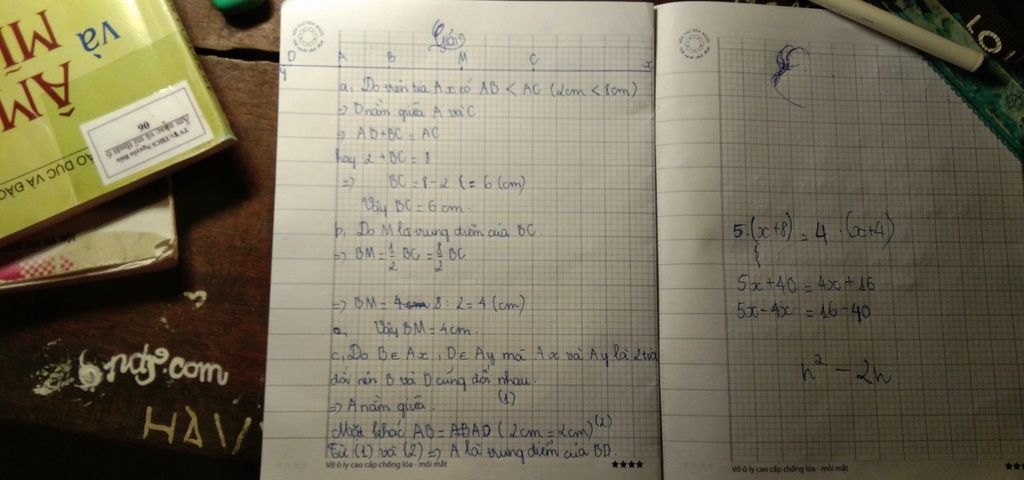 Giải
D A B M C x
y
a, Do trên tia Ax có AB < AC (2cm < 8cm)
=> B nằm giữa A và C
=> AB+BC = AC
hay 2 + BC = 8
=> BC = 8-2 = 6 (cm)
Vậy BC = 6 cm.
b, Do M là trung điểm của BC
=> BM = 1/2 BC = 8/2 BC
=> BM = 4 8 : 2 = 4 (cm)
Vậy BM = 4cm.
c, Do B ∈ Ax, D ∈ Ay mà Ax và Ay là 2 tia
đối nên B và D cũng đối nhau.
=> A nằm giữa. (1)
Mặt khác AB = AD (2cm = 2cm) (2)
Từ (1) và (2) => A là trung điểm của BD.
Vở ô ly cao cấp chống lóa - mỏi mắt
5.(x+8) = 4.(x+4)
5x+40 = 4x+16
5x-4x = 16-40
h² - 2h
Vở ô ly cao cấp chống lóa - mỏi mắt
ÂM
và
MĨ
TV: THCS Nguyễn
Âm nhạc và mĩ thuật 6
06
ÁO DỤC VÀ ĐÀO
.com
HAI
LO